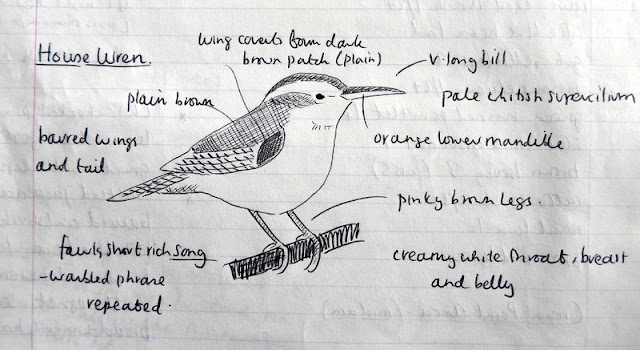 House Wren.
wing coverts form dark
brown patch (plain)
v. long bill
plain brown
pale whitish supercilium
barred wings
and tail
orange lower mandible
pinky brown legs.
fairly short rich song
- warbled phrase
repeated.
creamy white throat, breast
and belly